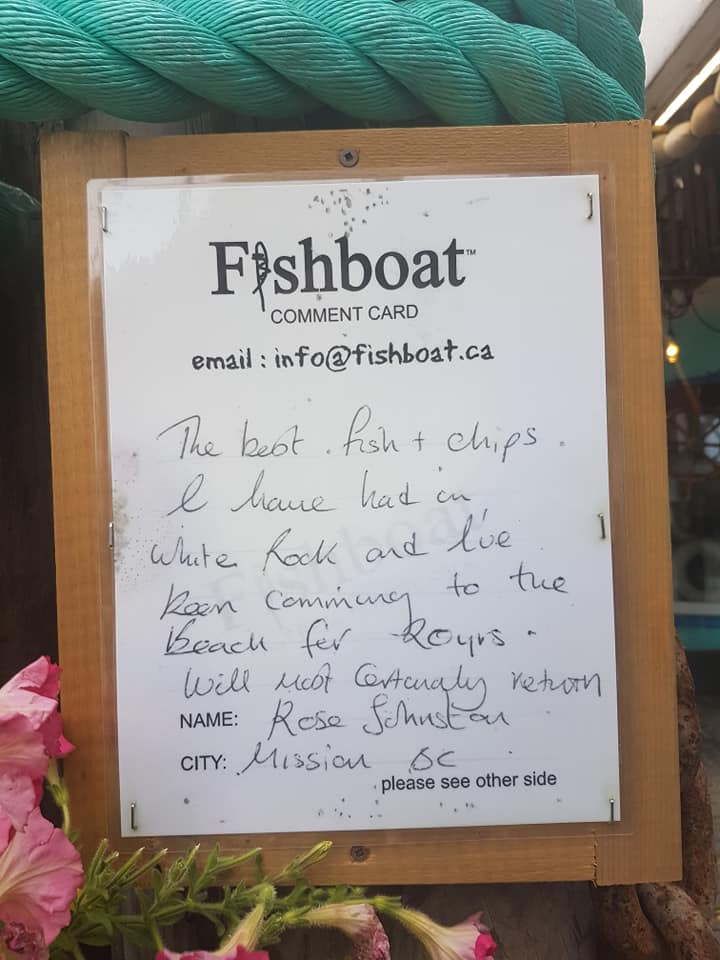 Fishboat™
COMMENT CARD
email : info@fishboat.ca
The best fish + chips.
I have had in
White Rock and I've
been comming to the
Beach for 20yrs.
Will most certanaly return
NAME: Rose Johnston
CITY: Mission BC
please see other side